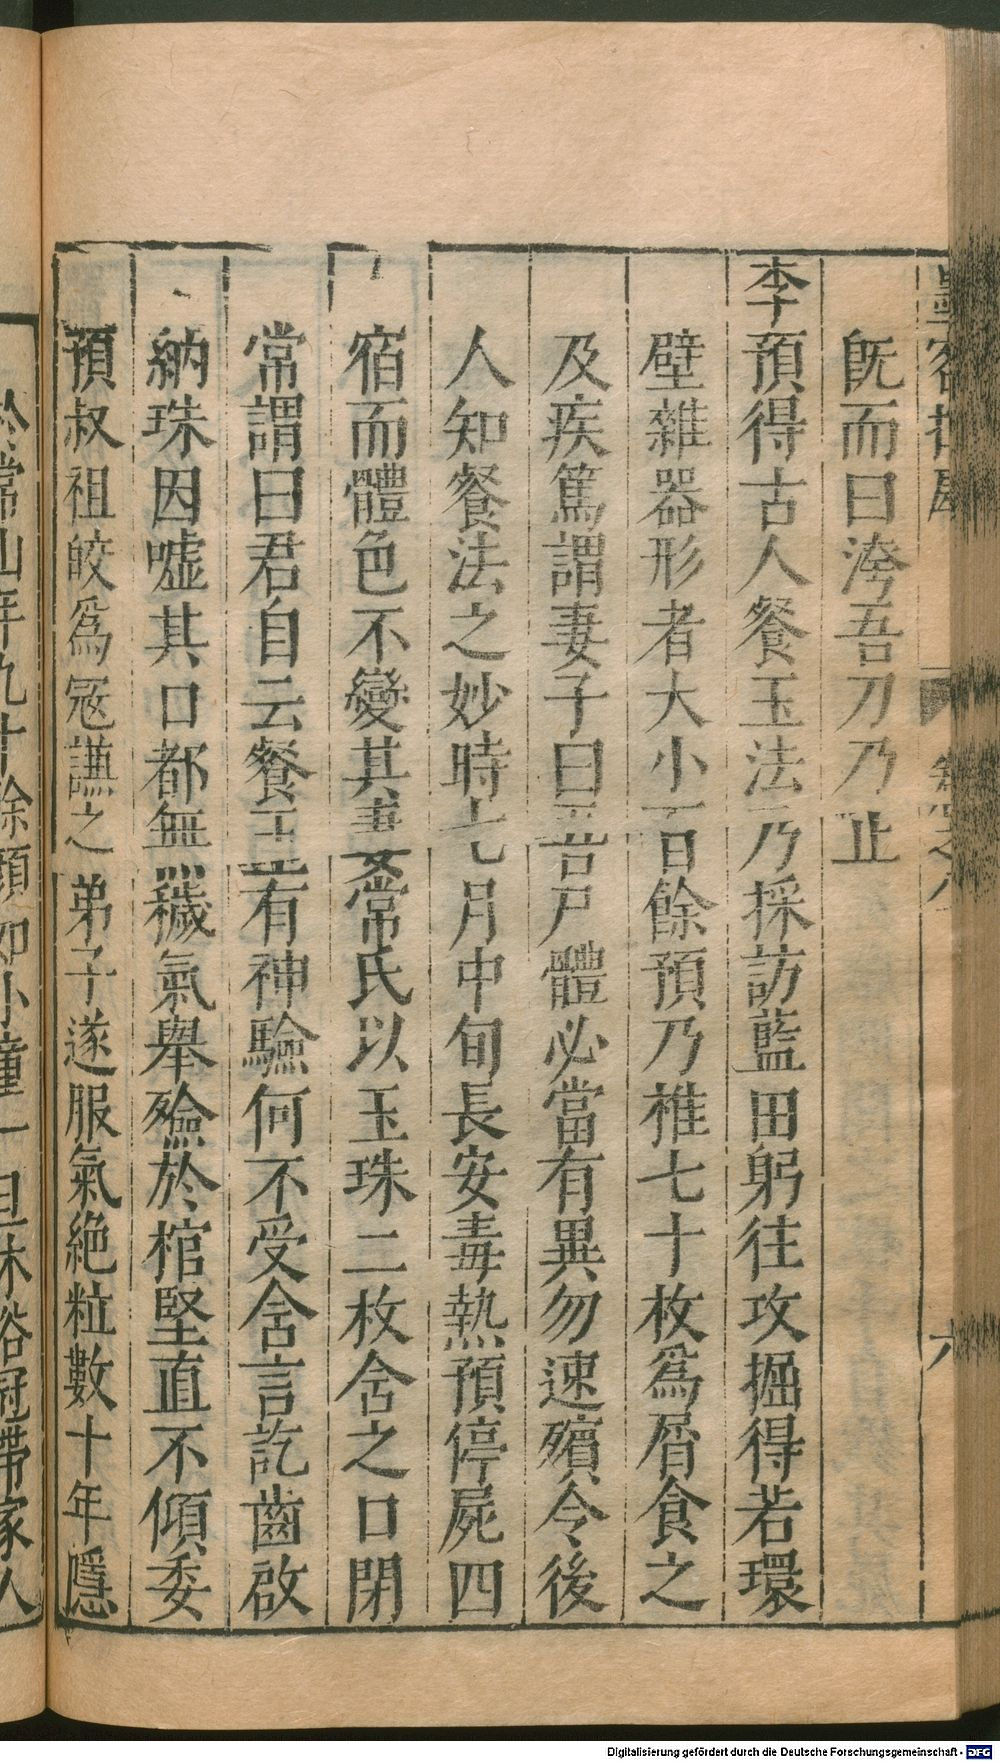 既而曰洿吾刀乃止
李預得古人餐玉法乃採訪藍田躬往攻掘得若環
壁雜器形者大小百餘預乃椎七十枚爲屑食之
及疾篤謂妻子曰吾尸體必當有異勿速殯令後
人知餐法之妙時七月中旬長安毒熱預停屍四
宿而體色不變其妻常氏以玉珠二枚含之口閉
常謂曰君自云餐玉有神驗何不受含言訖齒啟
納珠因噓其口都無穢氣舉殮於棺堅直不傾委
預叔祖皎爲冦謙之弟子遂服氣絶粒數十年隱
於常山年九十餘顔如小童一旦沐浴冠帶家人
六
Digitalisierung gefördert durch die Deutsche Forschungsgemeinschaft - DFG